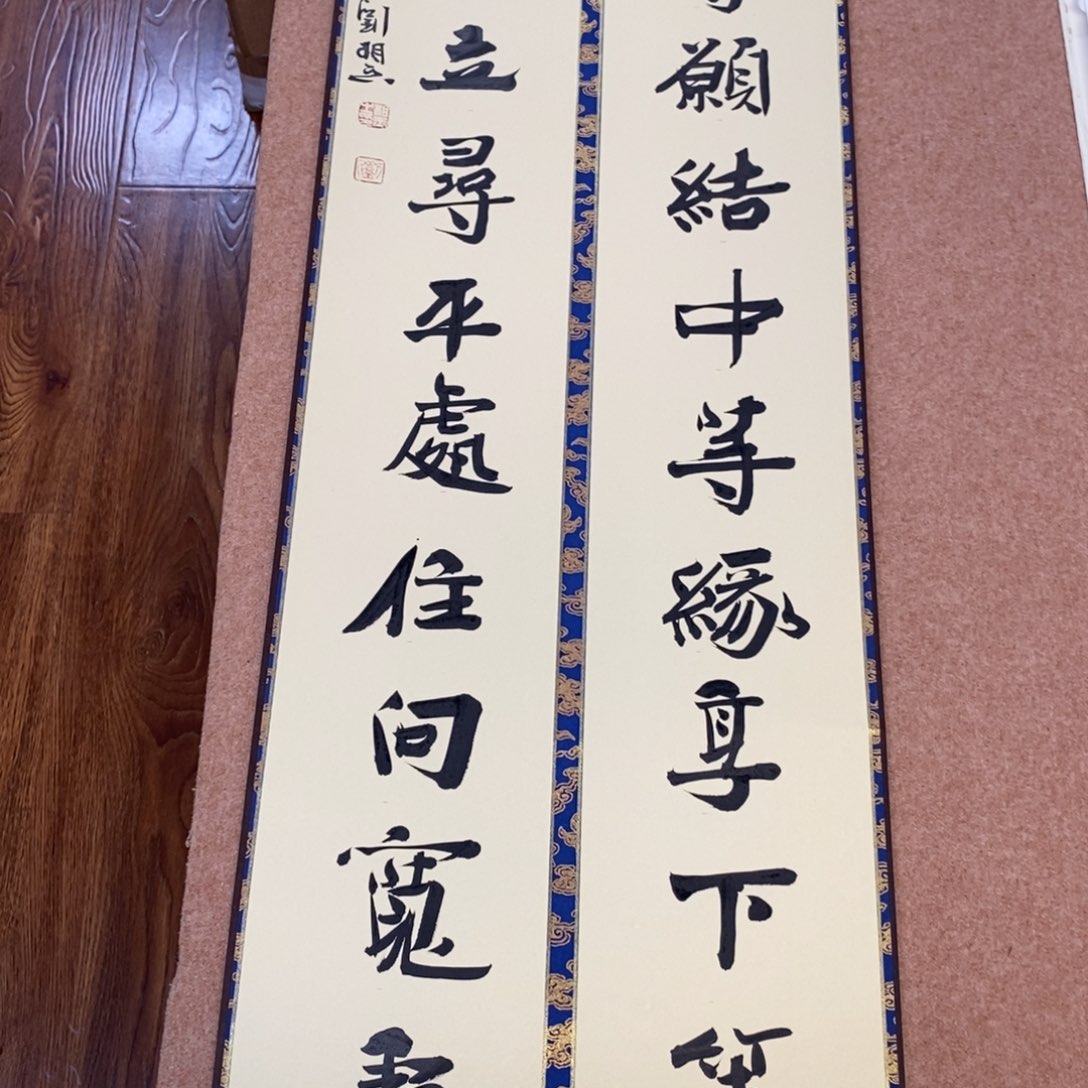 願結中等緣享下
立尋平處住向寬
劉